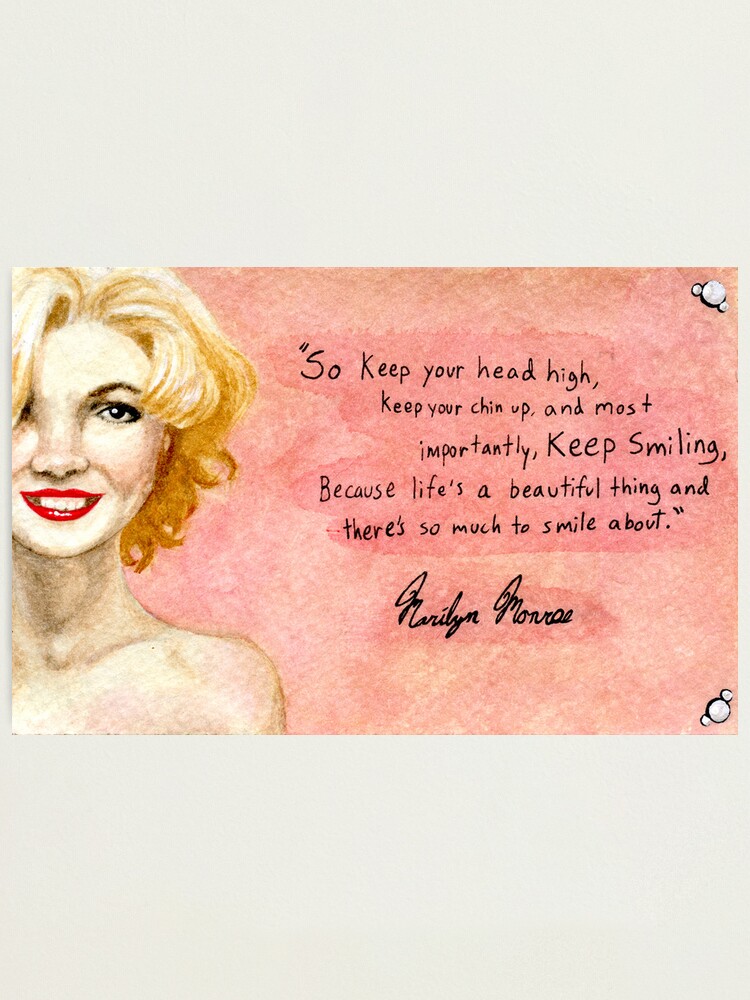 "So Keep your head high,
Keep your chin up, and most
importantly, Keep Smiling,
Because life's a beautiful thing and
there's so much to smile about."
Marilyn Monroe